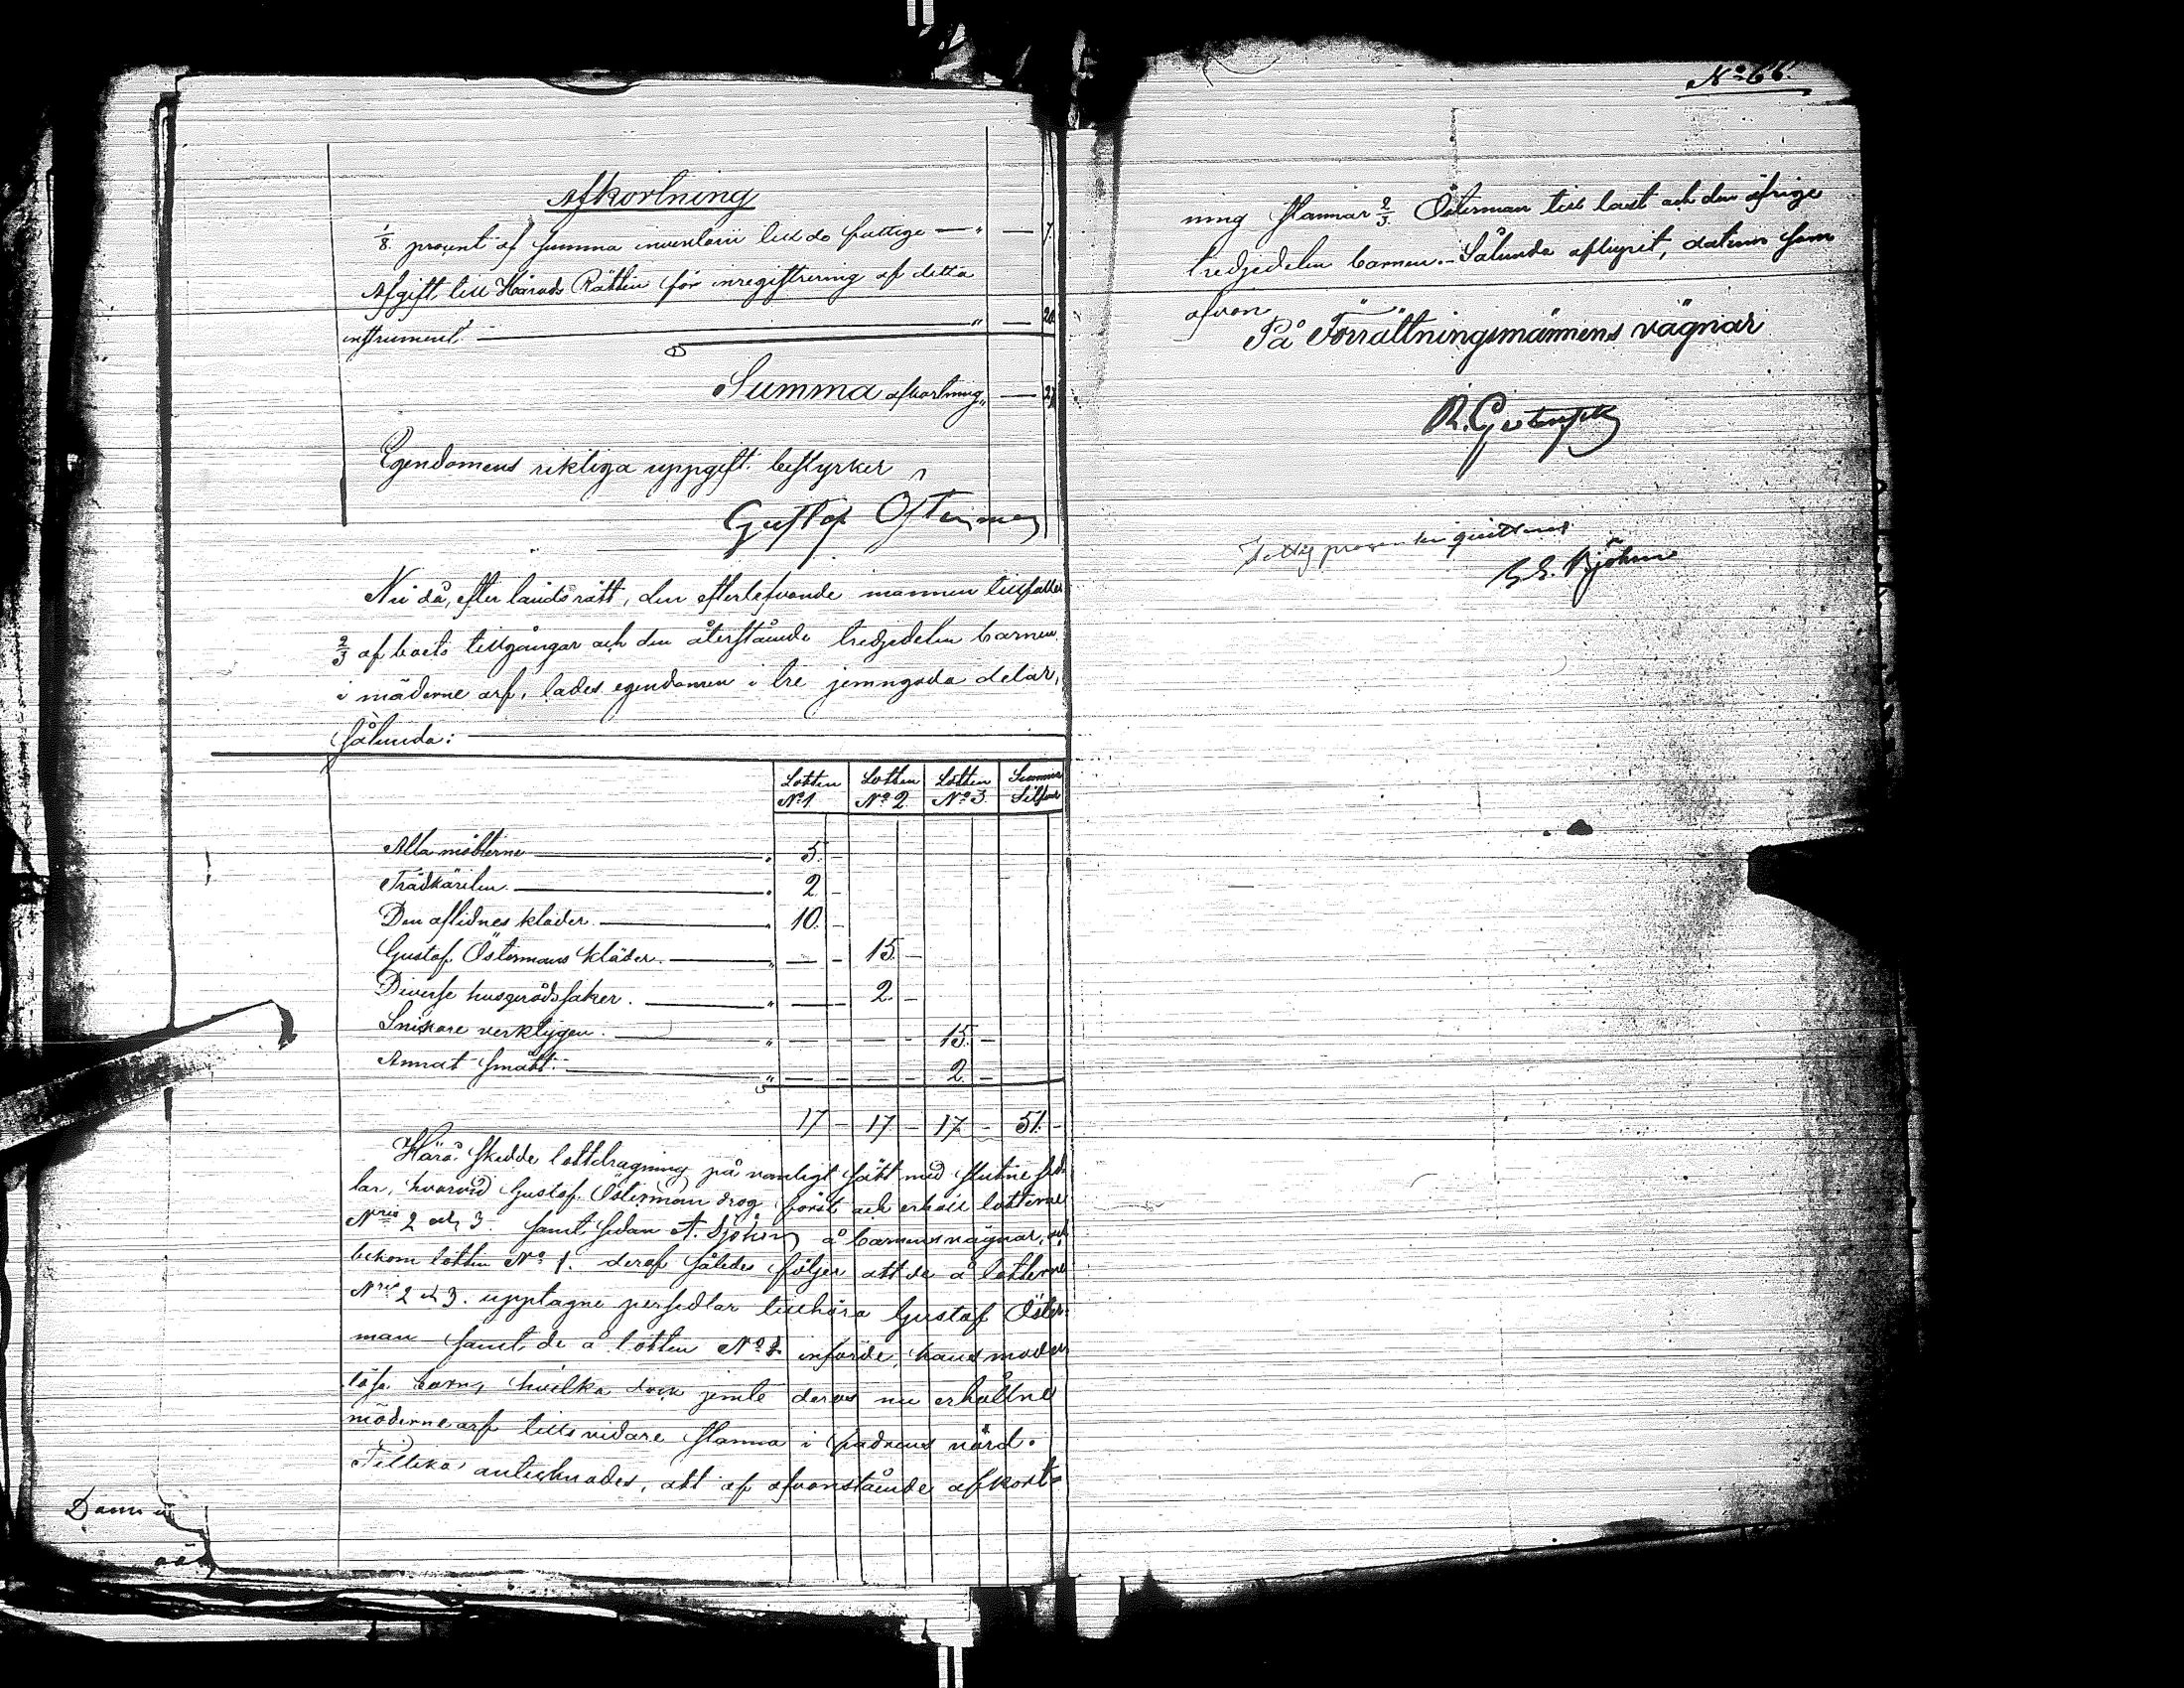 Afkortning
1/8 procent af summa inventarii till de fattige — " — 7.
Afgift till Härads Rätten för inregistrering af detta
instrument " — 20
Summa afkortning " — 27
Egendomens riktiga uppgift bestyrker
Gustaf Österman
Nu då, efter landsrätt, den efterlefvande mannen tillfaller
2/3 af boets tillgångar och den återstående tredjedelen barnen
i möderne arf, lades egendomen i tre jemngoda delar,
sålunda:
Lotten Nº 1. Lotten Nº 2 Lotten Nº 3. Summa Silfver
Alla möblerne . 5. —
Trädkärilen . 2 —
Den aflidnes kläder . 10. —
Gustaf Östermans kläder. " — — 15. —
Diverse husgerådssaker. " — — 2. —
Snikare verktygen. " — — — — 15. —
Annat smått. " — — — — 2. —
17 — 17 — 17 — 51. —
Härå skedde lottdragning på vanligt sätt med slutne sed-
lar, hvarvid Gustaf Österman drog först och erhöll lotterne
Nris 2 och 3. samt sedan A. Sjöhlm å barnens vägnar, och
bekom lotten Nº 1. deraf således följer att de å lotterne
Nris 2 et 3. upptagne persedlar tillhöra Gustaf Öster-
man samt de å lotten Nº 1. införde, hans moder-
lösa barn, hvilka dock jemte deras nu erhållne
möderne arf tills vidare stanna i fadrens vård.
Tillika antecknades, att af ofvanstående afkort-
Nº 66.
ning stannar 2/3 Österman till last och den öfrige
tredjedelen barnen. — Sålunda aflupit, datum som
ofvan
På Förrättningsmännens vägnar
Fattig procenten quitteras